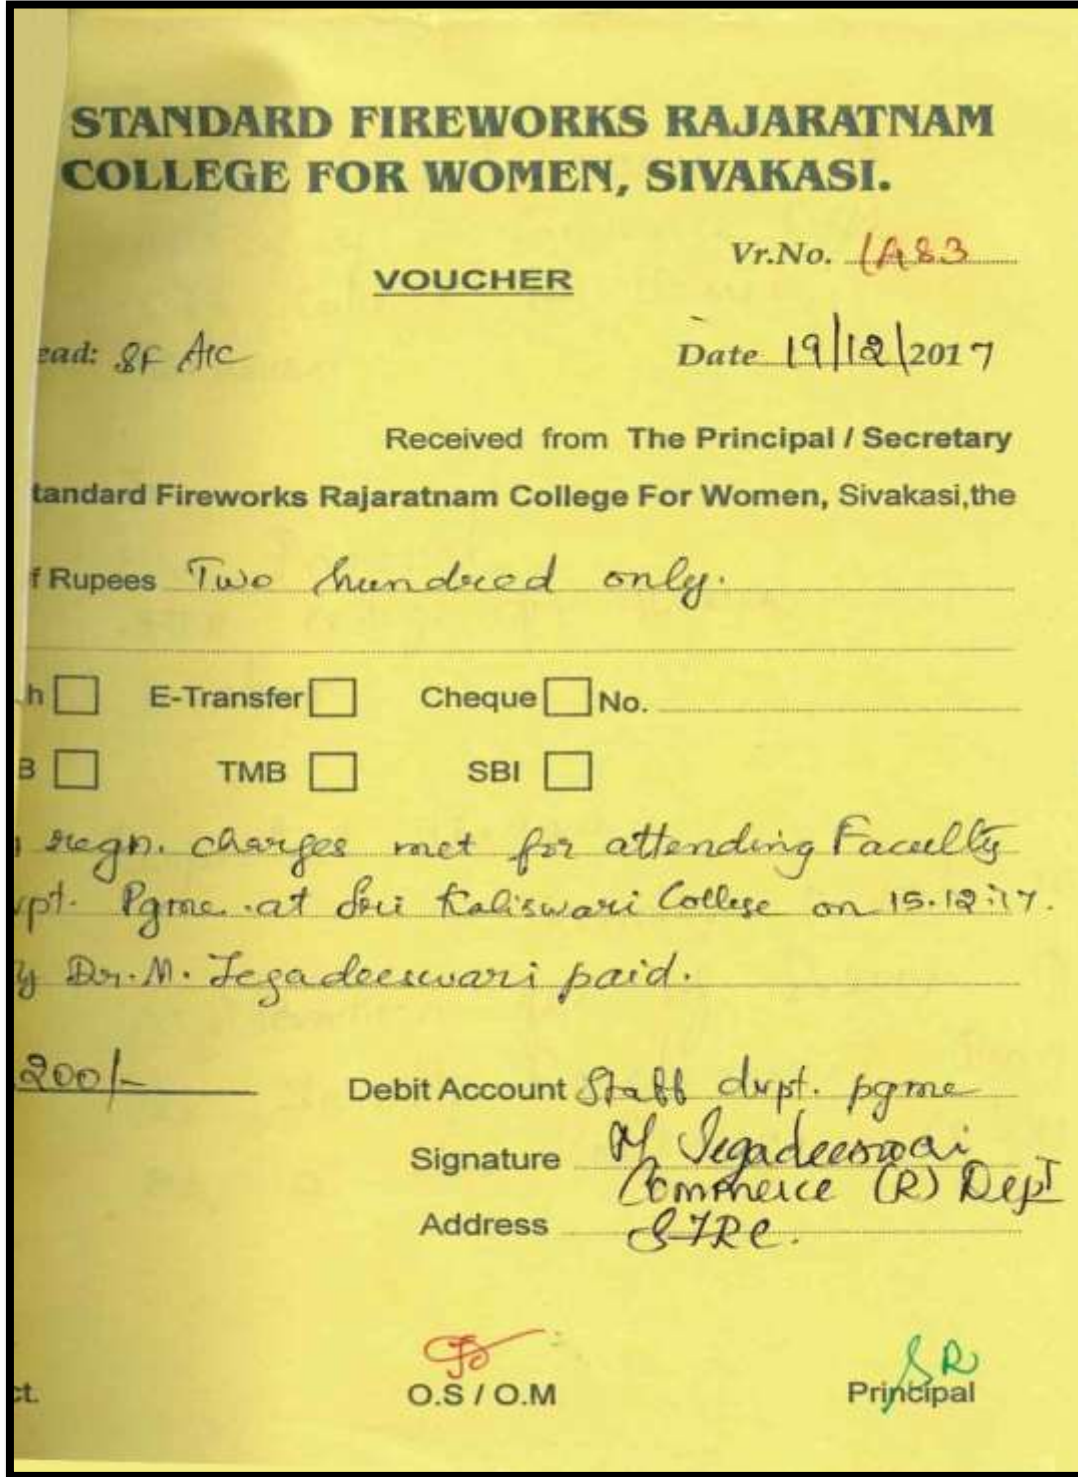 STANDARD FIREWORKS RAJARATNAM
COLLEGE FOR WOMEN, SIVAKASI.
Vr.No. 1A83
VOUCHER
ead: SF A/C
Date 19/12/2017
Received from The Principal / Secretary
tandard Fireworks Rajaratnam College For Women, Sivakasi,the
f Rupees Two hundred only.
h E-Transfer Cheque No.
B TMB SBI
regn. charges met for attending Faculty
vpt. Pgme. at Sri Kaliswari College on 15.12.17.
y Dr. M. Jegadeeswari paid.
200/-
Debit Account Staff dvpt. pgme
Signature M Jegadeeswari
Commerce (R) Dept
Address SFRC.
ct.
O.S / O.M
Principal